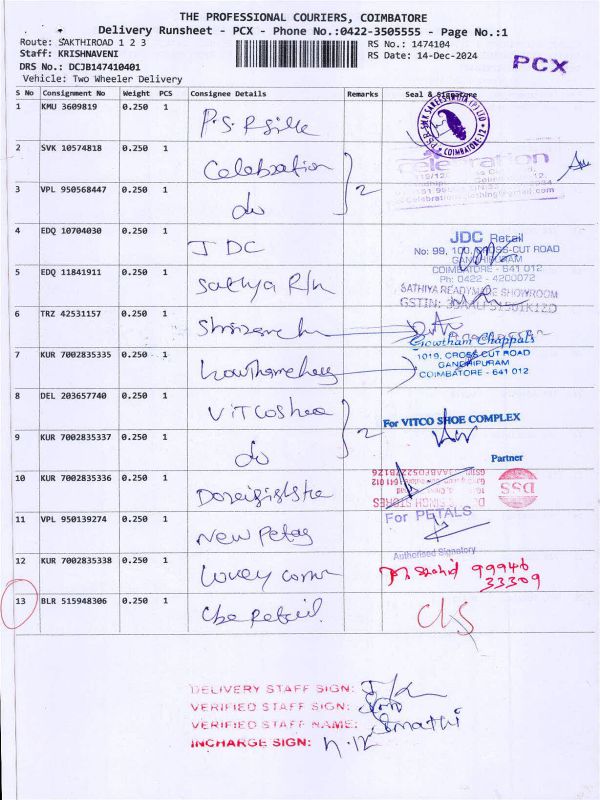 THE PROFESSIONAL COURIERS, COIMBATORE
Delivery Runsheet - PCX - Phone No.:0422-3505555 - Page No.:1
Route: SAKTHIROAD 1 2 3
RS No.: 1474104
Staff: KRISHNAVENI
RS Date: 14-Dec-2024
PCX
DRS No.: DCJB147410401
Vehicle: Two Wheeler Delivery
S No Consignment No Weight PCS Consignee Details Remarks Seal & Signature
1 KMU 3609819 0.250 1 P.S.R Silk
COIMBATORE-12
2 SVK 10574818 0.250 1 Celebration
celebration
3 VPL 950568447 0.250 1 do 2
4 EDQ 10704030 0.250 1 JDC
JDC Retail
No: 99, 100, CROSS-CUT ROAD
GANDHIPURAM
COIMBATORE - 641 012
Ph: 0422 - 4200072
5 EDQ 11841911 0.250 1 Sathya R/n
SATHIYA READYMADE SHOWROOM
6 TRZ 42531157 0.250 1
7 KUR 7002835335 0.250 1
Gowtham Chappals
1019, CROSS CUT ROAD
GANDHIPURAM
COIMBATORE - 641 012
8 DEL 203657740 0.250 1 Vitcoshoe
For VITCO SHOE COMPLEX
9 KUR 7002835337 0.250 1 do 2
Partner
10 KUR 7002835336 0.250 1
DSS
11 VPL 950139274 0.250 1 New Petals
For PETALS
Authorised Signatory
12 KUR 7002835338 0.250 1
99946
33309
13 BLR 515948306 0.250 1 Cbe Retail.
DELIVERY STAFF SIGN:
VERIFIED STAFF SIGN:
VERIFIED STAFF NAME: Sumathi
INCHARGE SIGN: